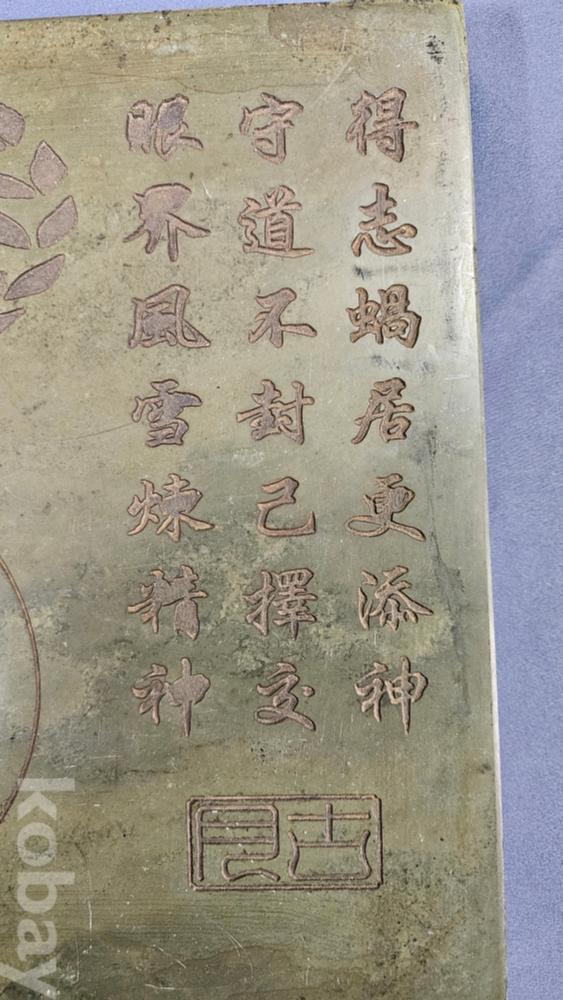 得志蝸居更添神
守道不封己擇交
眼界風雪煉精神
古見
kobay